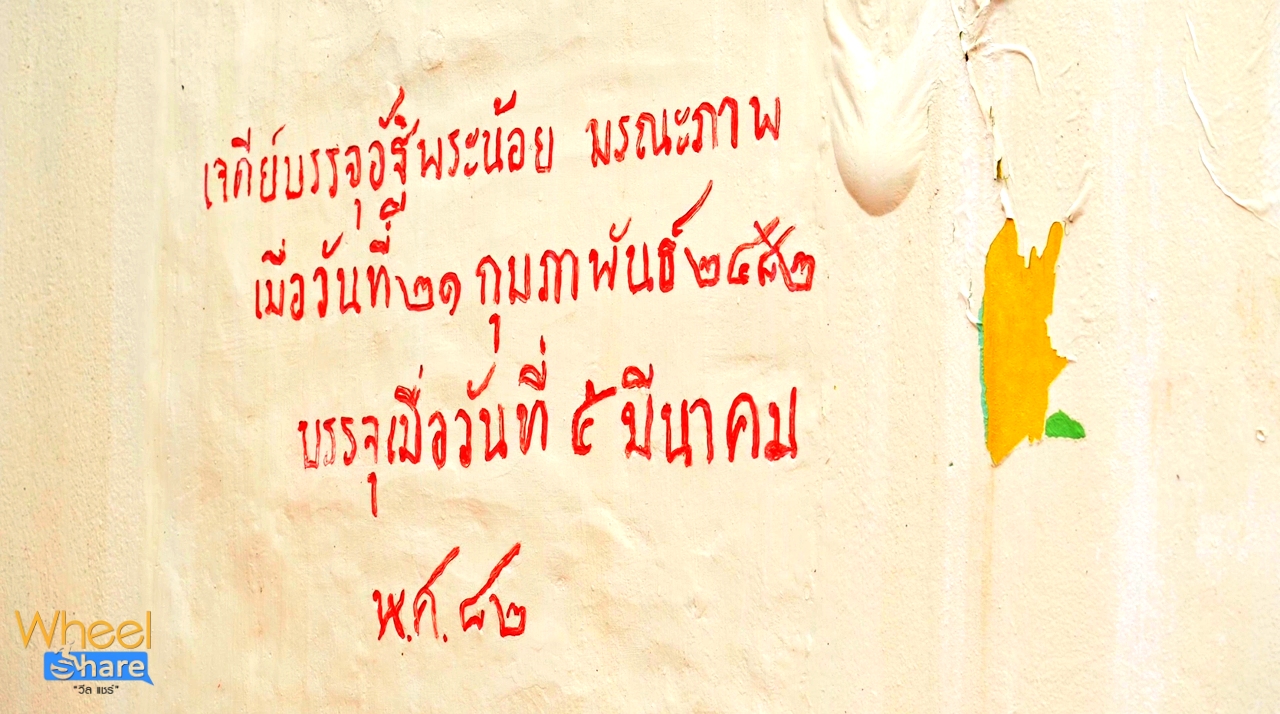 เจดีย์บรรจุอัฐิพระน้อย มรณะภาพ
เมื่อวันที่ ๒๑ กุมภาพันธ์ ๒๔๘๒
บรรจุเมื่อวันที่ ๕ มีนาคม
พ.ศ. ๘๒
Wheel
Share
"วีล แชร์"